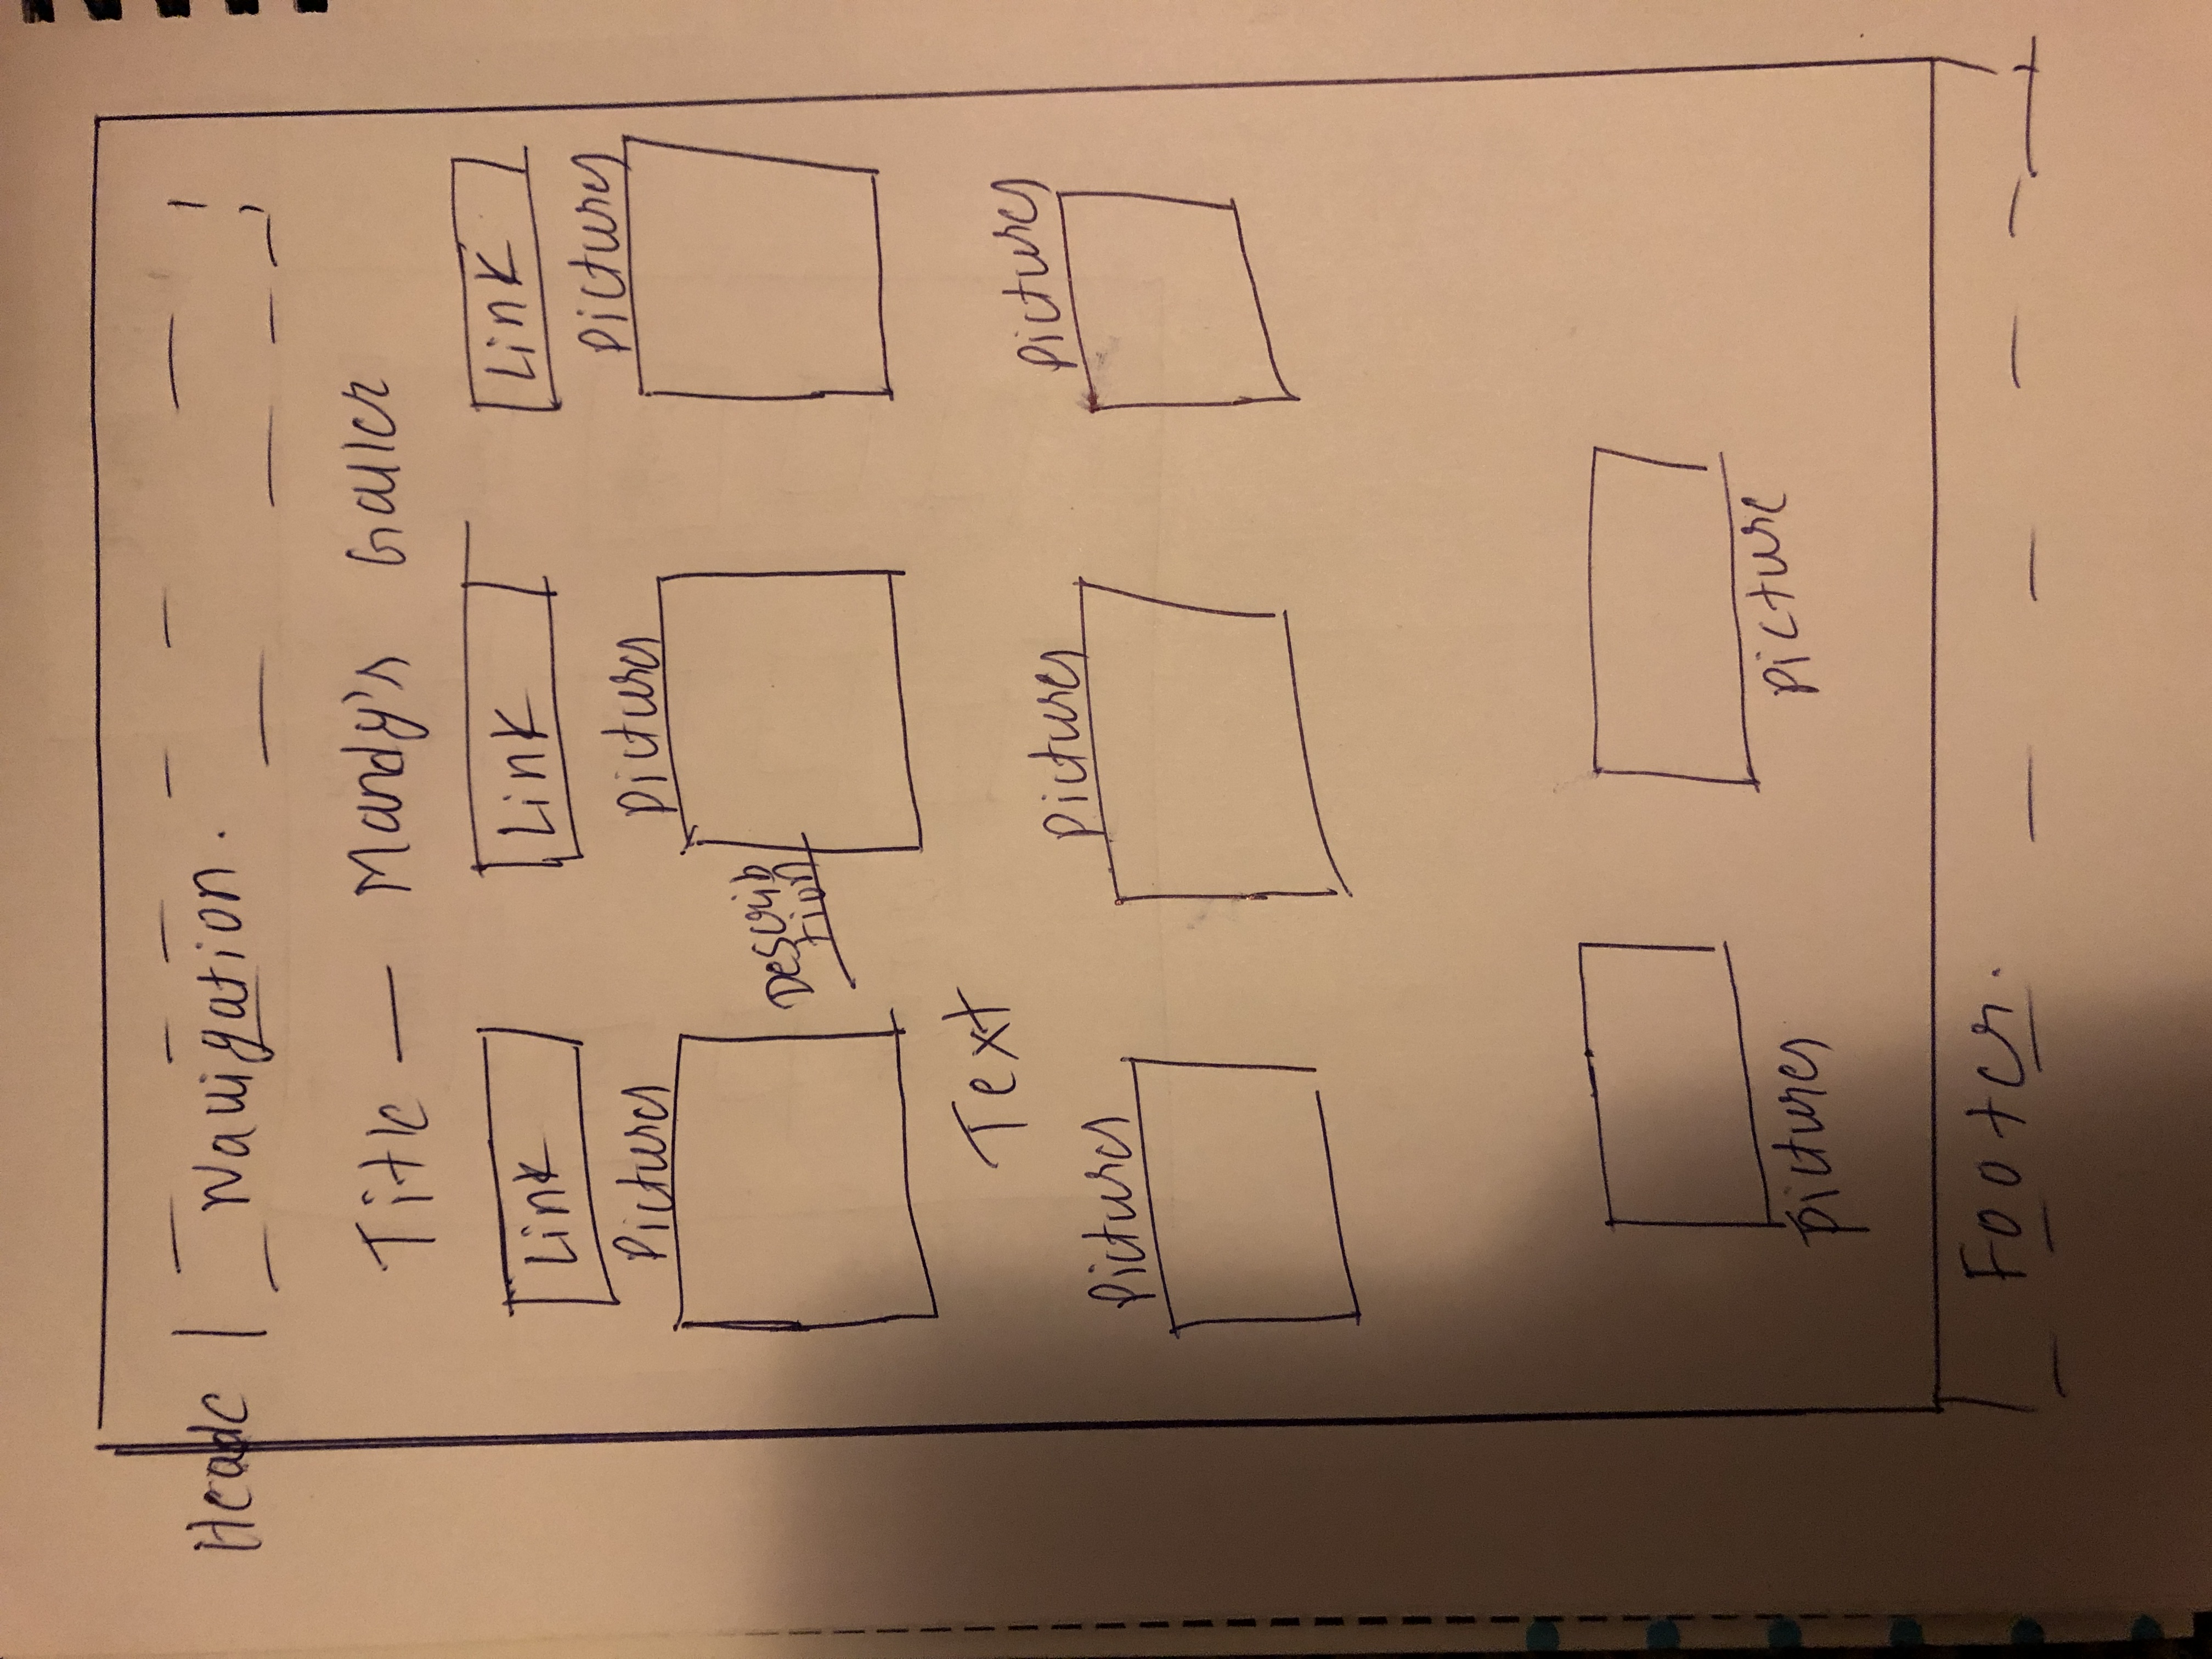 Heade Navigation.
Title — Mandy's Galler
Link Link Link
Pictures Pictures Pictures
Describ
tion
Text
Pictures Pictures Pictures
Pictures Picture
Footer.